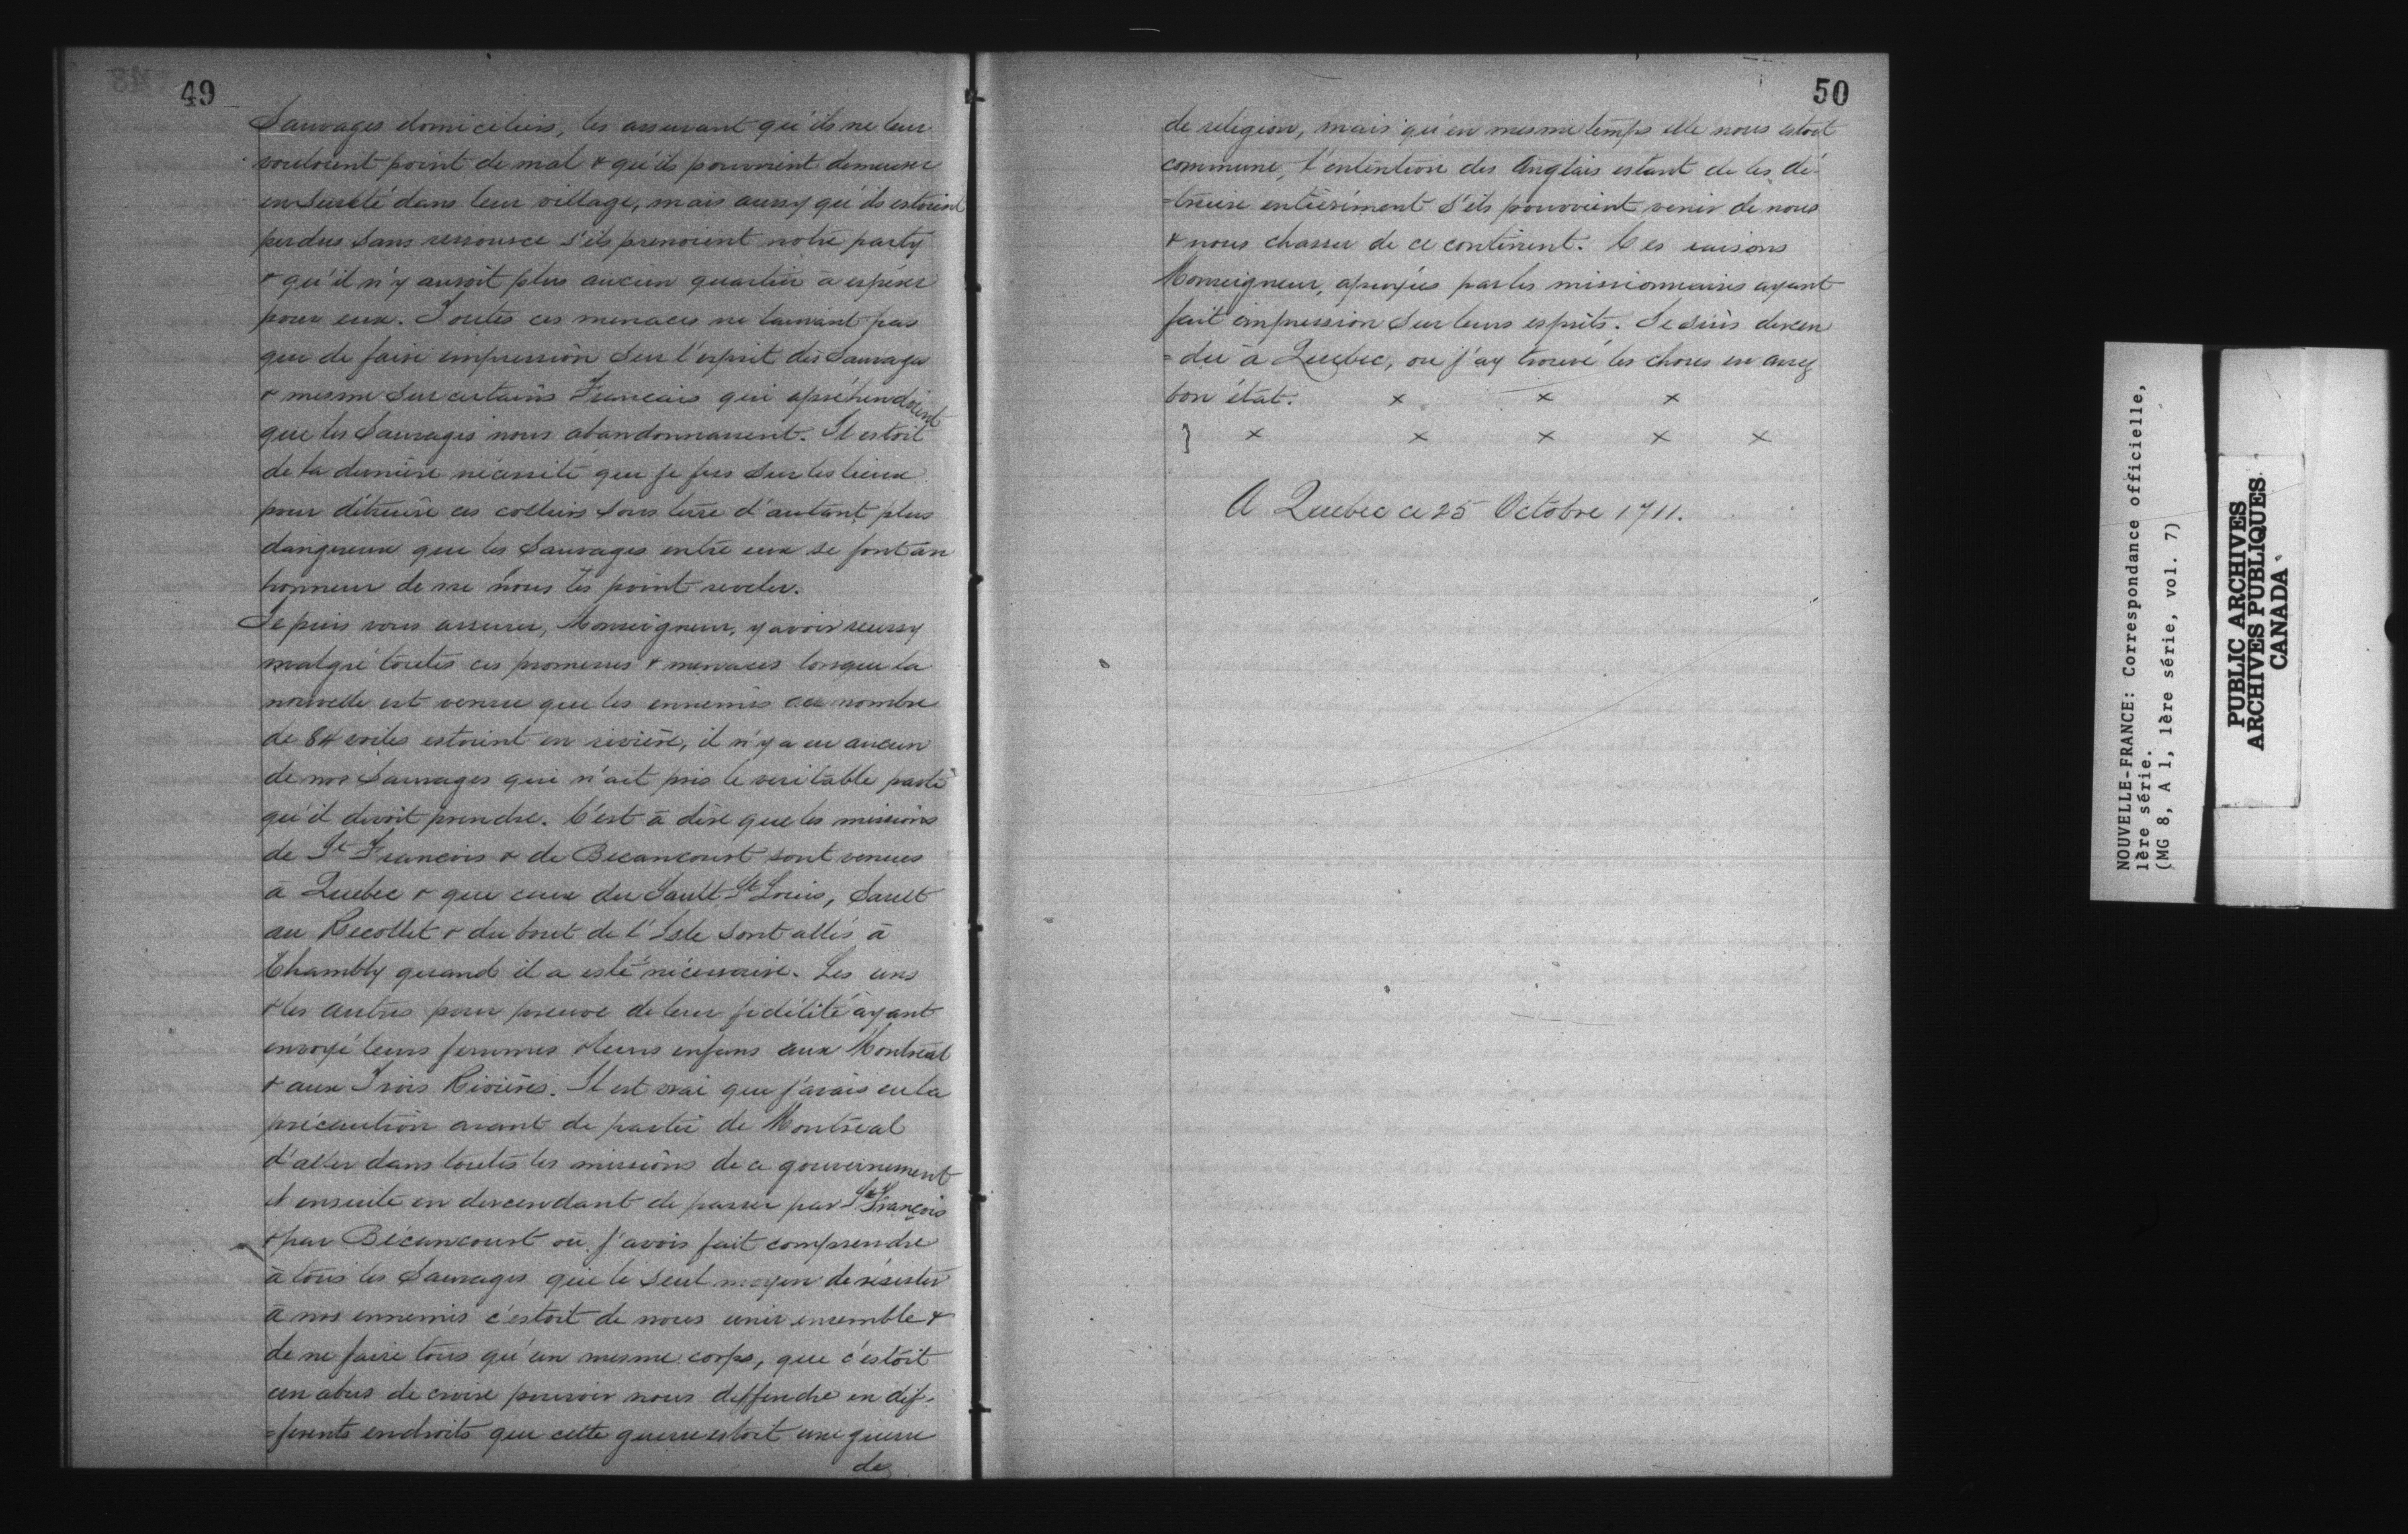 49
Sauvages domiciliers, les assurant qu'ils ne leur
vouloient point de mal & qu'ils pouvoient demeurer
en Sureté dans leur village, mais aussy qu'ils estoient
perdus Sans ressource s'ils prenoient notre party
& qu'il n'y auroit plus aucun quartier à espérer
pour eux. Toutes ces menaces ne laissant pas
que de faire impression Sur l'esprit des Sauvages
& mesme Sur certains Francais qui apréhendoient
que les Sauvages nous abandonnassent. Il estoit
de la dernière nécessité que je fus Sur les lieux
pour détruire ces colliers Sous terre d'autant plus
dangereux que les Sauvages entre eux se font un
honneur de ne nous les point reveler.
Je puis vous assurer, Monseigneur, y avoir reussy
malgré toutes ces promesses & menaces lorsque la
nouvelle est venue que les ennemis au nombre
de 84 voiles estoient en rivière, il n'y a eu aucun
de nos Sauvages qui n'ait pris le veritable parti
qu'il devoit prendre. C'est à dire que les missions
de St Francois & de Becancourt sont venues
à Quebec & que ceux du Sault St Louis, Sault
au Recollet & du bout de l'Isle Sont allés à
Chambly quand il a esté nécessaire. Les uns
& les autres pour preuve de leur fidélité ayant
envoyé leurs femmes & leurs enfans aux Montréal
& aux Trois Rivières. Il est vrai que j'avais eu la
précaution avant de partir de Montréal
d'aller dans toutes les missions de ce gouvernement
et ensuite en descendant de passer par St François
& par Bécancourt où j'avois fait comprendre
à tous les Sauvages que le Seul moyen de résister
à nos ennemis c'estoit de nous unir ensemble &
de ne faire tous qu'un mesme corps, que c'estoit
un abus de croire pouvoir nous deffendre en dif-
=ferents endroits que cette guerre estoit une guerre
de
50
de religion, mais qu'en mesme temps elle nous estoit
commune, l'entention des Anglais estant de les dé-
=truire entièrement S'ils pouvoient venir de nous
& nous chasser de ce continent. Ces raisons
Monseigneur, apuyées par les missionnaires ayant
fait impression Sur leurs esprits. Je Suis descen
=du à Quebec, ou j'ay trouvé les choses en assez
bon état. x x x
} x x x x x
A Quebec ce 25 Octobre 1711.
NOUVELLE-FRANCE: Correspondance officielle,
1ère série.
(MG 8, A 1, 1ère série, vol. 7)
PUBLIC ARCHIVES
ARCHIVES PUBLIQUES
CANADA